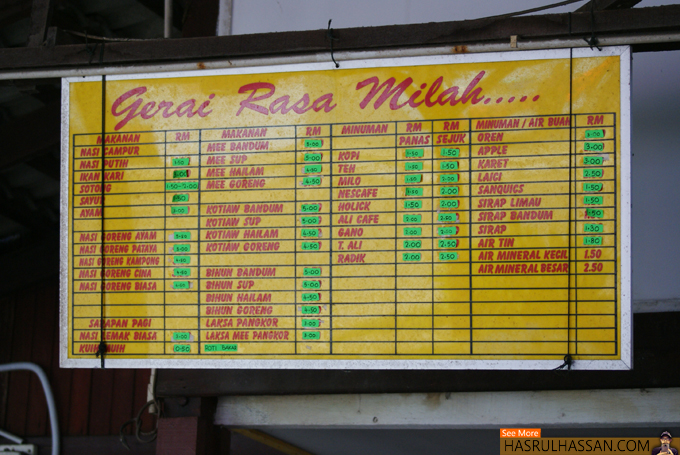 Gerai Rasa Milah.....
MAKANAN RM MAKANAN RM MINUMAN RM RM MINUMAN / AIR BUAH RM
PANAS SEJUK
NASI CAMPUR MEE BANDUM OREN
NASI PUTIH MEE SUP KOPI 1·50 APPLE 3·00
IKAN KARI MEE HAILAM TEH KARET 3·00
SOTONG 1·50-5·00 MEE GORENG 4·50 MILO LAICI 2·50
SAYUR NESCAFE 2·00 SANQUICS 1·50
AYAM KOTIAW BANDUM 5·00 HOLICK 1·50 2·00 SIRAP LIMAU 1·50
KOTIAW SUP 5·00 ALI CAFE 2·00 2·00 SIRAP BANDUM
NASI GORENG AYAM KOTIAW HAILAM GANO 2·00 SIRAP 1·30
NASI GORENG PATAYA KOTIAW GORENG T. ALI 2·00 2·50 AIR TIN 1·80
NASI GORENG KAMPONG RADIK 2·00 2·50 AIR MINERAL KECIL 1.50
NASI GORENG CINA BIHUN BANDUM 5·00 AIR MINERAL BESAR 2.50
NASI GORENG BIASA BIHUN SUP 5·00
BIHUN HAILAM
BIHUN GORENG 4·50
SARAPAN PAGI LAKSA PANGKOR
NASI LEMAK BIASA LAKSA MEE PANGKOR
KUIH MUIH 0·50 ROTI BAKAR
See More
HASRULHASSAN.COM